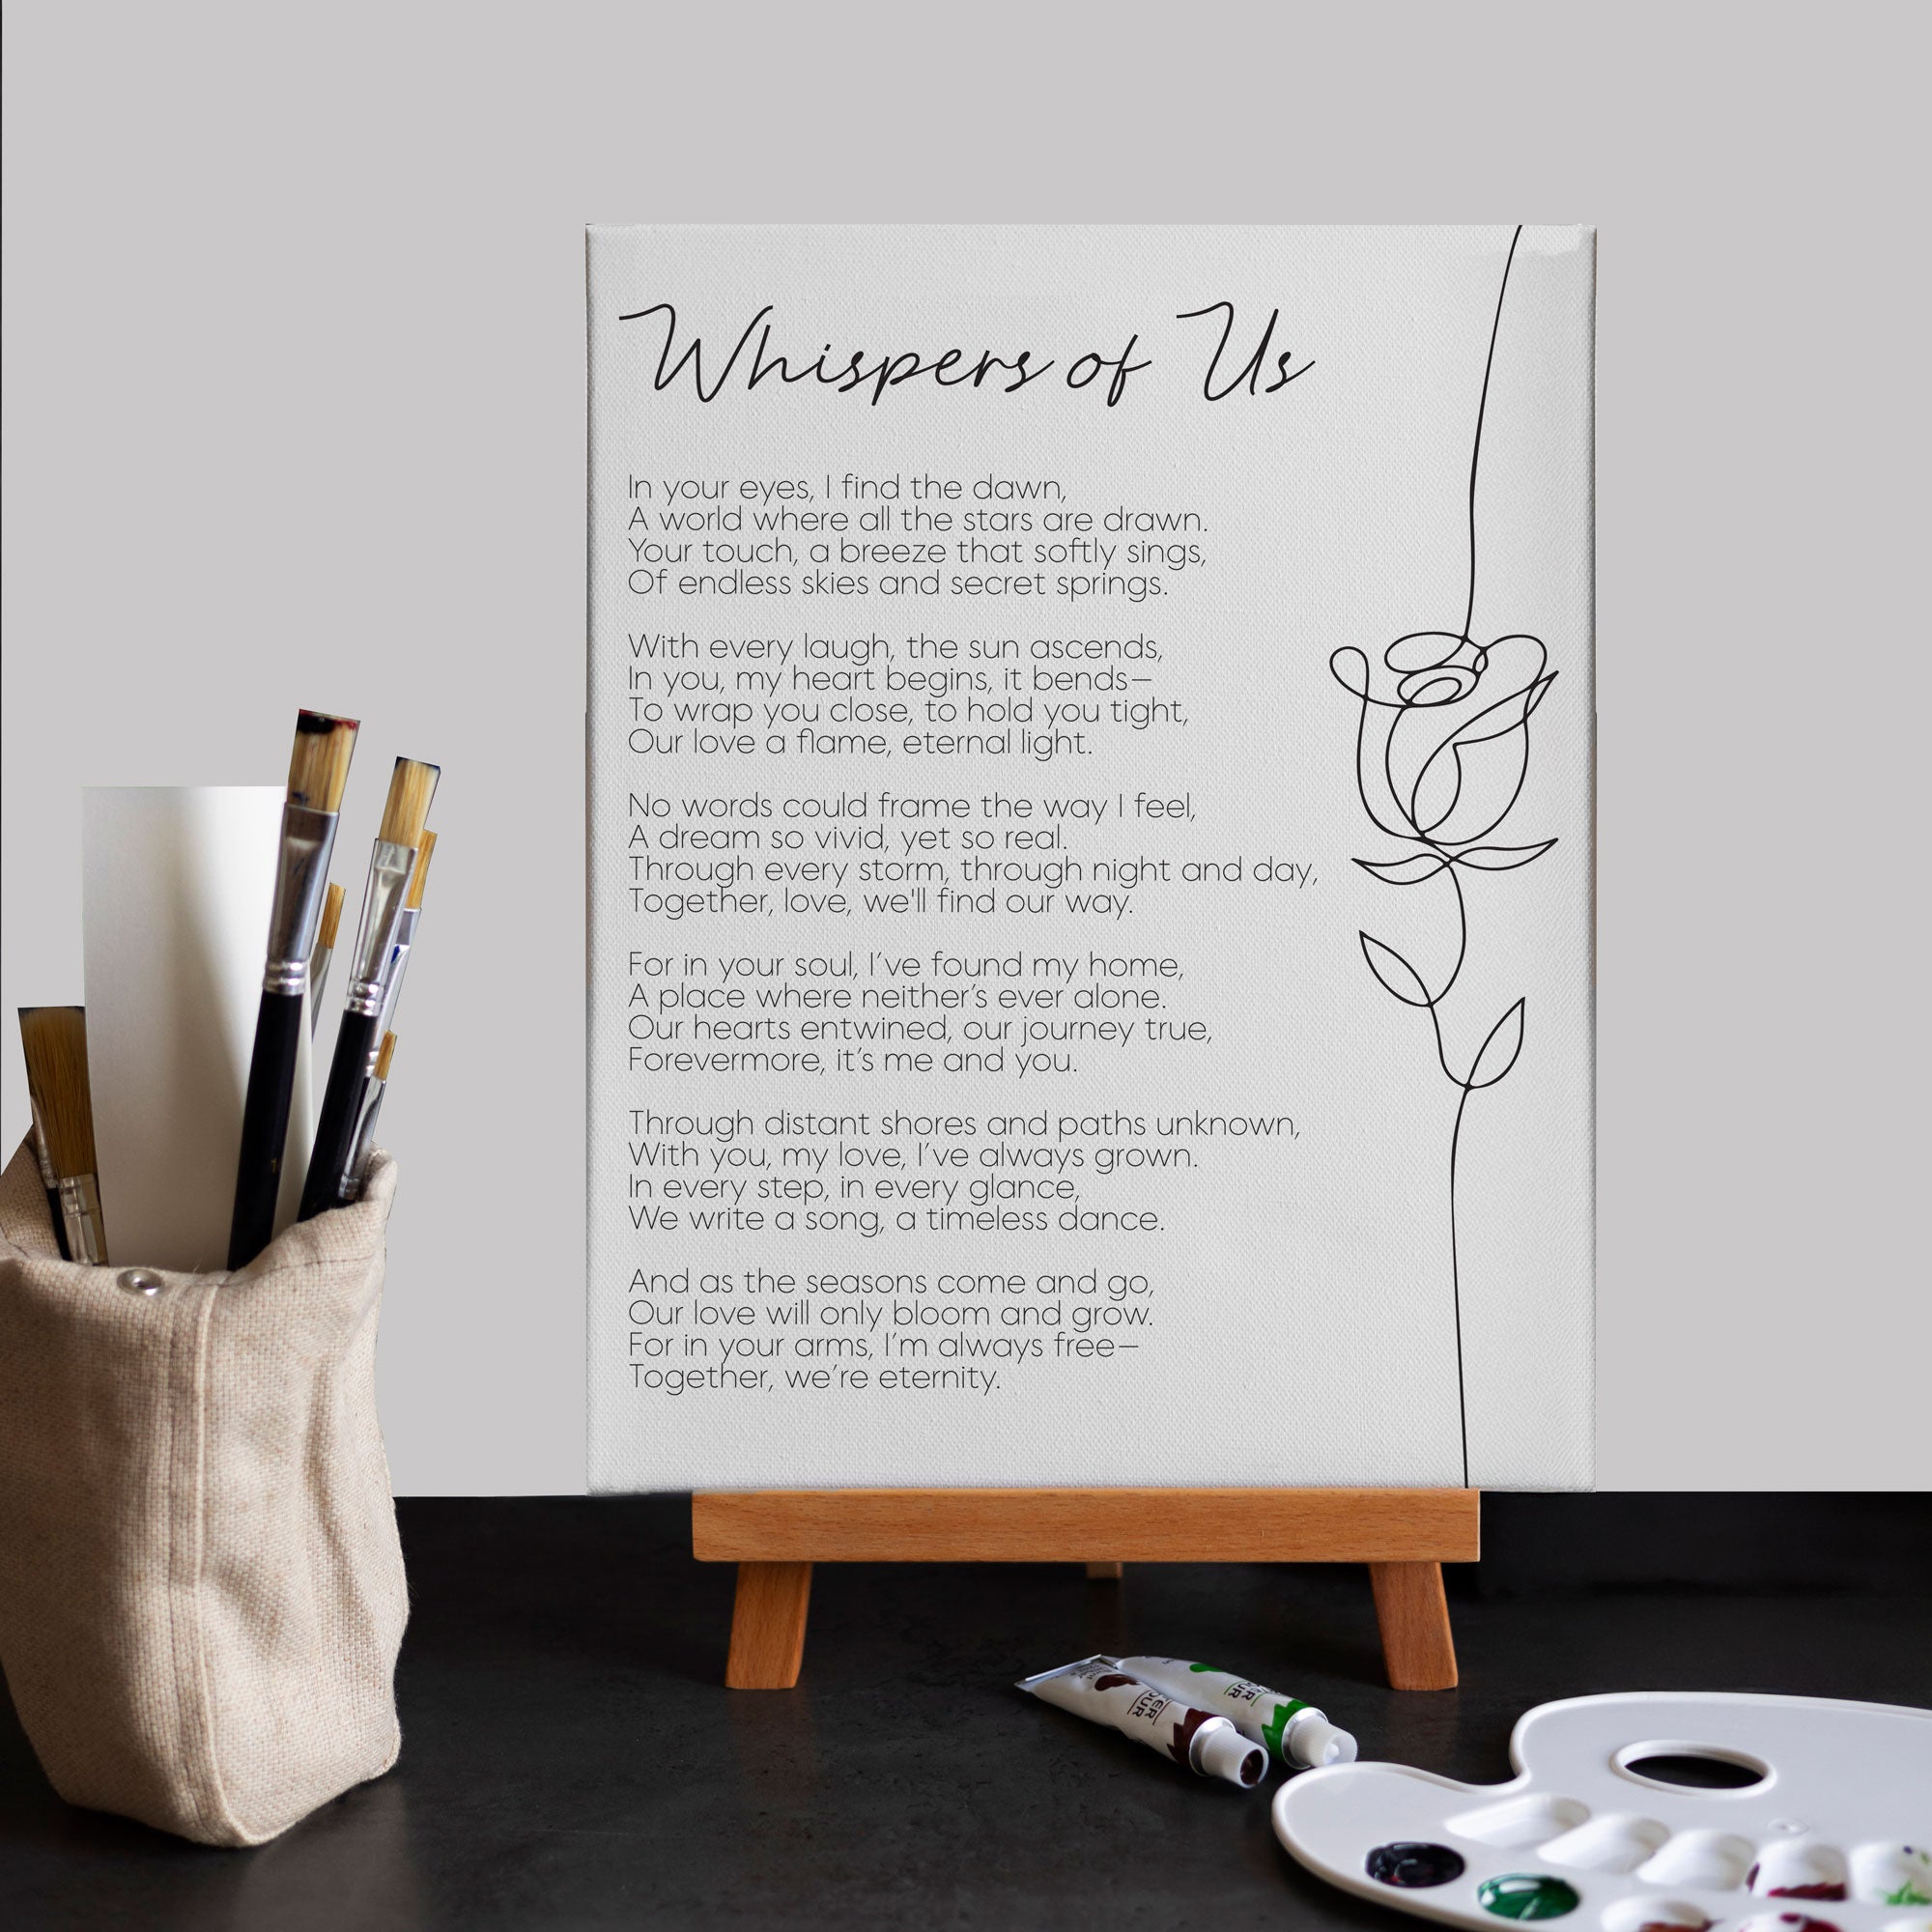 Whispers of Us
In your eyes, I find the dawn,
A world where all the stars are drawn.
Your touch, a breeze that softly sings,
Of endless skies and secret springs.
With every laugh, the sun ascends,
In you, my heart begins, it bends—
To wrap you close, to hold you tight,
Our love a flame, eternal light.
No words could frame the way I feel,
A dream so vivid, yet so real.
Through every storm, through night and day,
Together, love, we'll find our way.
For in your soul, I’ve found my home,
A place where neither’s ever alone.
Our hearts entwined, our journey true,
Forevermore, it’s me and you.
Through distant shores and paths unknown,
With you, my love, I’ve always grown.
In every step, in every glance,
We write a song, a timeless dance.
And as the seasons come and go,
Our love will only bloom and grow.
For in your arms, I’m always free—
Together, we’re eternity.